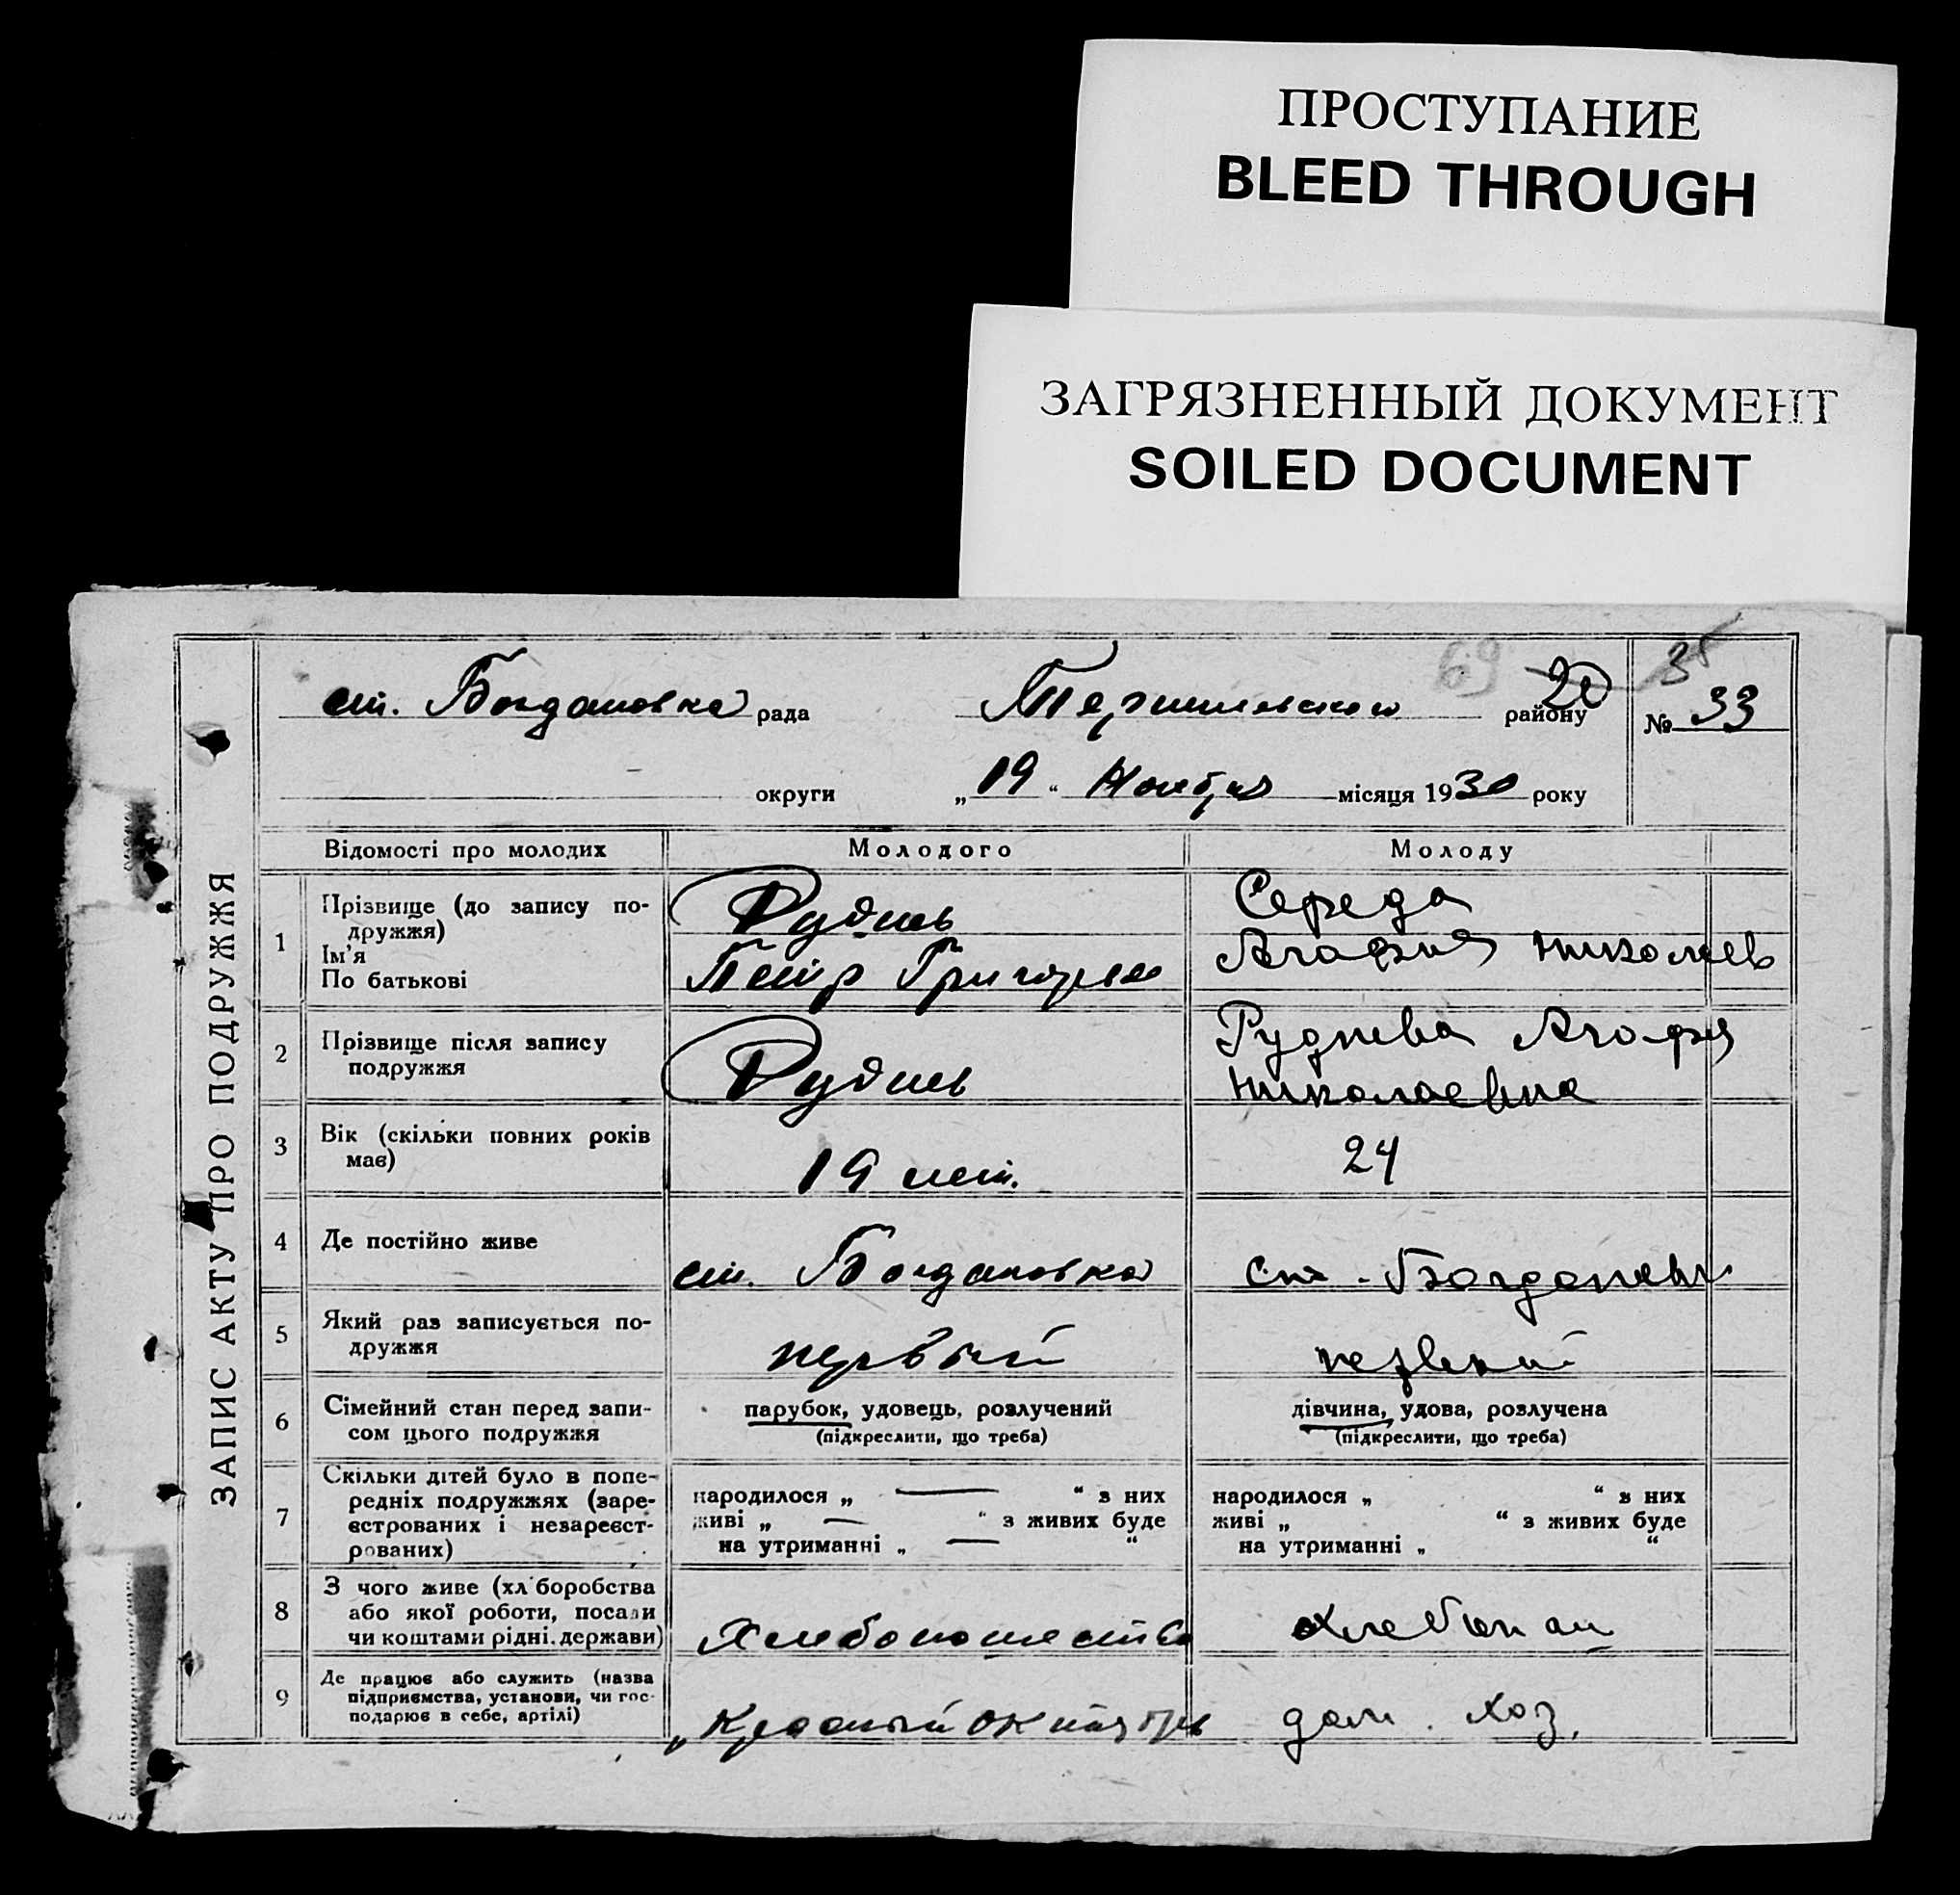 ПРОСТУПАНИЕ
BLEED THROUGH
ЗАГРЯЗНЕННЫЙ ДОКУМЕНТ
SOILED DOCUMENT
69 20 35
ст. Богдановка рада району № 33
округи „19“ Ноября місяця 1930 року
ЗАПИС АКТУ ПРО ПОДРУЖЖЯ
Відомості про молодих Молодого Молоду
1 Прізвище (до запису по-
дружжя)
Ім'я
По батькові
Руднев
Петр Григорьев
Середа
Агафия Николаев
2 Прізвище після запису
подружжя
Руднев
Руднева Агафия
Николаевна
3 Вік (скільки повних років
має)
19 лет.
24
4 Де постійно живе
ст. Богдановка
ст. Богдановк
5 Який раз записується по-
дружжя
первый
первый
6 Сімейний стан перед запи-
сом цього подружжя
парубок, удовець, розлучений
(підкреслити, що треба)
дівчина, удова, розлучена
(підкреслити, що треба)
7 Скільки дітей було в попе-
редніх подружжях (заре-
єстрованих і незареєст-
рованих)
народилося „ — “ з них
живі „ — “ з живих буде
на утриманні „ — “
народилося „ “ з них
живі „ “ з живих буде
на утриманні „ “
8 З чого живе (хл боробства
або якої роботи, посади
чи коштами рідні.держави)
Хлебопашество
хлебопаш
9 Де працює або служить (назва
підприємства, установи, чи гос-
подарює в себе, артілі)
„Красный Октябрь
дом. хоз.